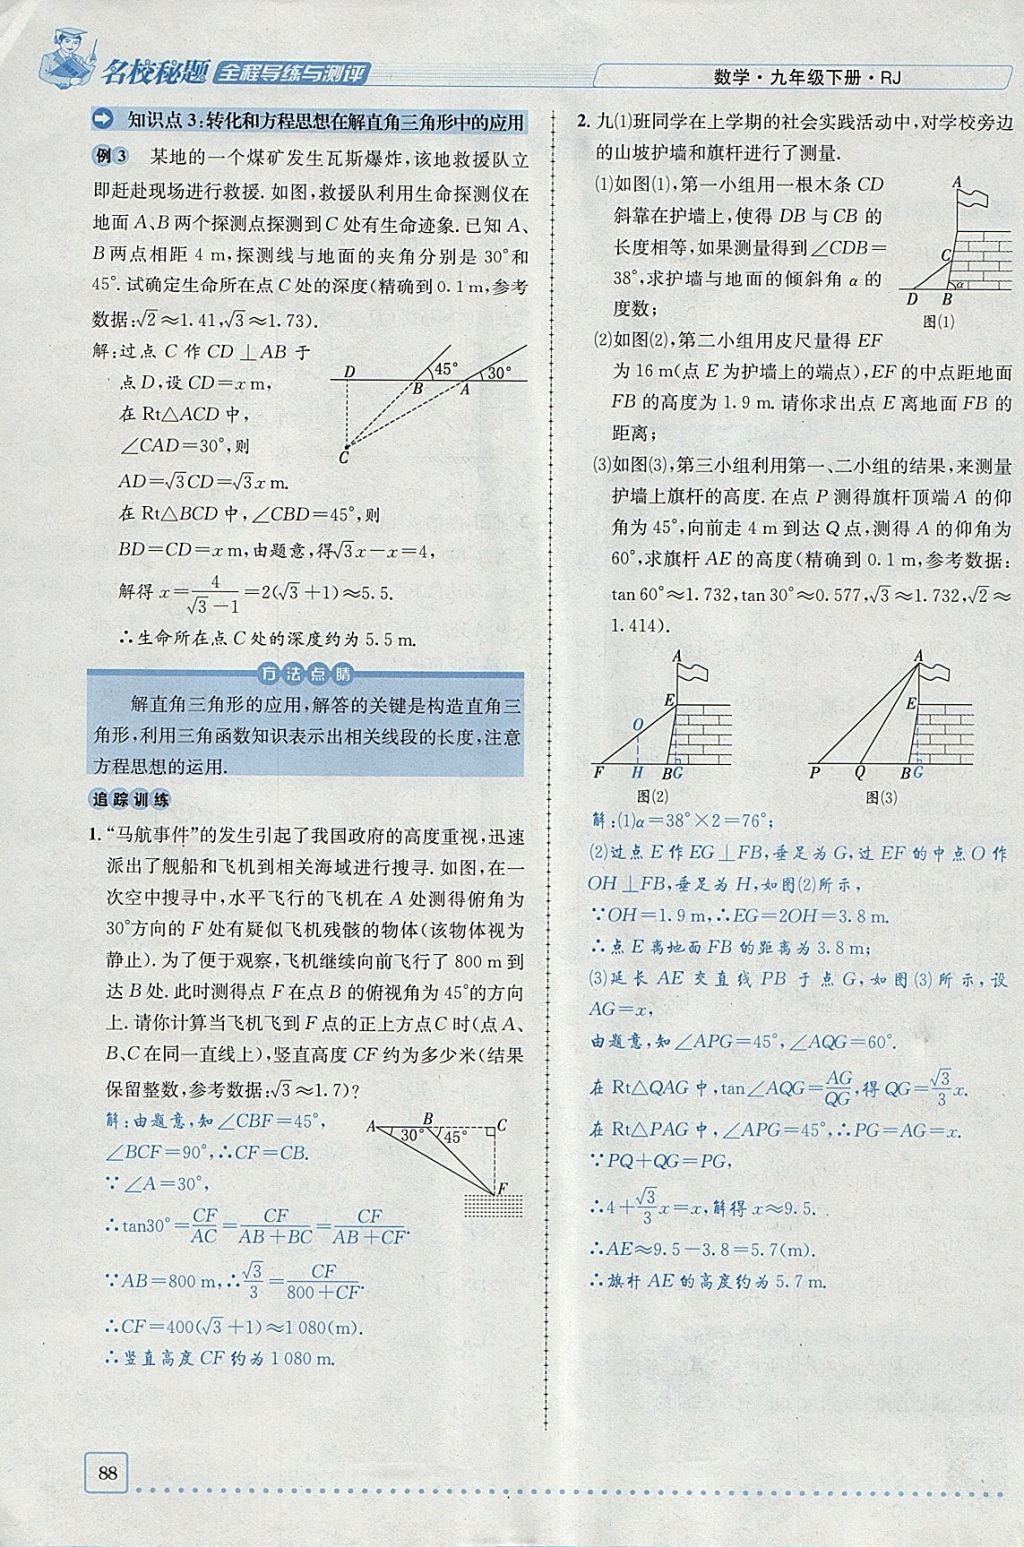 名校秘题 全程导练与测评
数学·九年级下册·RJ
知识点3:转化和方程思想在解直角三角形中的应用
例3 某地的一个煤矿发生瓦斯爆炸,该地救援队立
即赶赴现场进行救援.如图,救援队利用生命探测仪在
地面A、B两个探测点探测到C处有生命迹象.已知A、
B两点相距4 m,探测线与地面的夹角分别是30°和
45°.试确定生命所在点C处的深度(精确到0.1 m,参考
数据:√2≈1.41,√3≈1.73).
解:过点C作CD⊥AB于
点D,设CD=x m,
在Rt△ACD中,
∠CAD=30°,则
AD=√3CD=√3x m.
在Rt△BCD中,∠CBD=45°,则
BD=CD=x m,由题意,得√3x-x=4,
解得x=4/(√3-1)=2(√3+1)≈5.5.
∴生命所在点C处的深度约为5.5 m.
D 45° 30°
B A
C
方法点睛
解直角三角形的应用,解答的关键是构造直角三
角形,利用三角函数知识表示出相关线段的长度,注意
方程思想的运用.
追踪训练
1.“马航事件”的发生引起了我国政府的高度重视,迅速
派出了舰船和飞机到相关海域进行搜寻.如图,在一
次空中搜寻中,水平飞行的飞机在A处测得俯角为
30°方向的F处有疑似飞机残骸的物体(该物体视为
静止).为了便于观察,飞机继续向前飞行了800 m到
达B处.此时测得点F在点B的俯视角为45°的方向
上.请你计算当飞机飞到F点的正上方点C时(点A、
B、C在同一直线上),竖直高度CF约为多少米(结果
保留整数,参考数据:√3≈1.7)?
解:由题意,知∠CBF=45°,
∠BCF=90°,∴CF=CB.
∵∠A=30°,
∴tan30°=CF/AC=CF/(AB+BC)=CF/(AB+CF).
∵AB=800 m,∴√3/3=CF/(800+CF).
∴CF=400(√3+1)≈1 080(m).
∴竖直高度CF约为1 080 m.
A B C
30° 45°
F
88
2.九(1)班同学在上学期的社会实践活动中,对学校旁边
的山坡护墙和旗杆进行了测量.
(1)如图(1),第一小组用一根木条CD
斜靠在护墙上,使得DB与CB的
长度相等,如果测量得到∠CDB=
38°,求护墙与地面的倾斜角α的
度数;
A
C
α
D B
图(1)
(2)如图(2),第二小组用皮尺量得EF
为16 m(点E为护墙上的端点),EF的中点距地面
FB的高度为1.9 m.请你求出点E离地面FB的
距离;
(3)如图(3),第三小组利用第一、二小组的结果,来测量
护墙上旗杆的高度.在点P测得旗杆顶端A的仰
角为45°,向前走4 m到达Q点,测得A的仰角为
60°,求旗杆AE的高度(精确到0.1 m,参考数据:
tan 60°≈1.732,tan 30°≈0.577,√3≈1.732,√2≈
1.414).
A
E
O
F H B G
图(2)
A
E
P Q B G
图(3)
解:(1)α=38°×2=76°;
(2)过点E作EG⊥FB,垂足为G,过EF的中点O作
OH⊥FB,垂足为H,如图(2)所示,
∵OH=1.9 m,∴EG=2OH=3.8 m.
∴点E离地面FB的距离为3.8 m;
(3)延长AE交直线PB于点G,如图(3)所示,设
AG=x,
由题意,知∠APG=45°,∠AQG=60°.
在Rt△QAG中,tan∠AQG=AG/QG,得QG=√3/3x.
在Rt△PAG中,∠APG=45°,∴PG=AG=x.
∵PQ+QG=PG,
∴4+√3/3x=x,解得x≈9.5.
∴AE≈9.5-3.8=5.7(m).
∴旗杆AE的高度约为5.7 m.